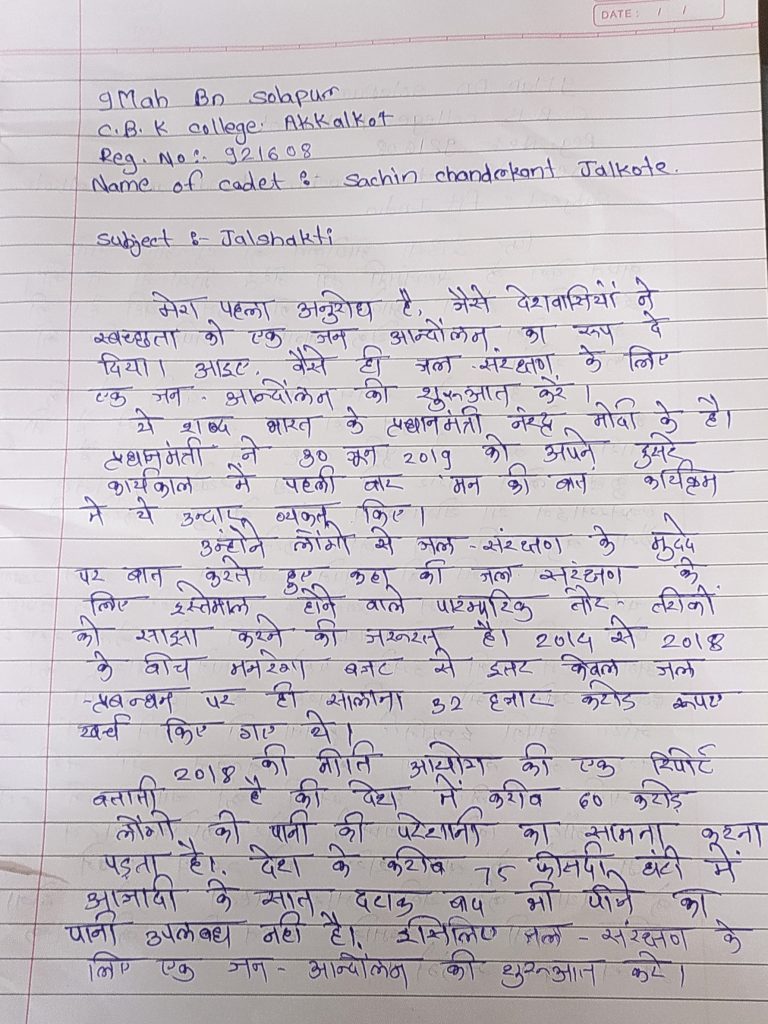 DATE: / /
9 Mah Bn Solapur
C.B. K College. Akkalkot
Reg. No:- 921608
Name of cadet :- Sachin chandrakant Jalkote.
Subject :- Jalshakti
मेरा पहला अनुरोध है, जैसे देशवासियों ने
स्वच्छता को एक जन आन्दोलन का रूप दे
दिया। आइए, वैसे ही जल संरक्षण के लिए
एक जन - आन्दोलन की शुरूआत करें।
ये शब्द भारत के प्रधानमंत्री नरेंद्र मोदी के है।
प्रधानमंत्री ने 30 जून 2019 को अपने दुसरे
कार्यकाल में पहली बार मन की बात कार्यक्रम
में ये उन्दार व्यक्त किए।
उन्होंने लोंगो से जल - संरक्षण के मुद्दे
पर बात करते हुए कहा की जल संरक्षण के
लिए इस्तेमाल होने वाले पारम्पारिक तौर - तरीकों
को साझा करने की जरूरत है। 2014 से 2018
के बीच मनरेगा बजट से इतर केवल जल
-प्रबन्धन पर ही सालाना 32 हजार करोड रूपए
खर्च किए गए थे।
2018 की नीति आयोग की एक रिपोर्ट
बताती है की देश में करीब 60 करोड़
लोंगो को पानी की परेशानी का सामना करना
पड़ता है। देश के करीब 75 फीसदी घरों में
आजादी के सात दशक बाद भी पीने का
पानी उपलब्ध नही है। इसिलिए जल - संरक्षण के
लिए एक जन - आन्दोलन की शुरूआत करे।